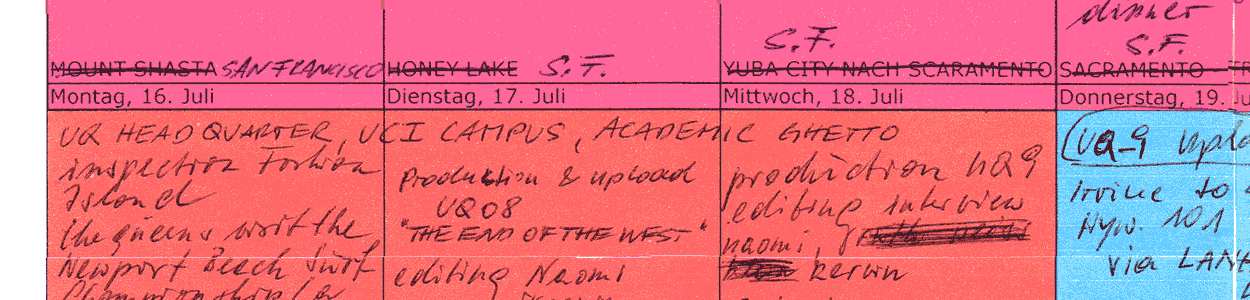 dinner
S.F. S.F.
MOUNT SHASTA SAN FRANCISCO HONEY LAKE S.F. YUBA CITY NACH SCARAMENTO SACRAMENTO
Montag, 16. Juli Dienstag, 17. Juli Mittwoch, 18. Juli Donnerstag, 19. Ju
UQ HEADQUARTER, UCI CAMPUS, ACADEMIC GHETTO
inspection Fashion
Island
the queens visit the
Newport Beach Surf
Championship
Production & upload
UQ08
"THE END OF THE WEST"
editing Naomi
production UQ9
editing interview
naomi,
kerwn
UQ_9 uplo
Irvine to
Hyw. 101
via LAN